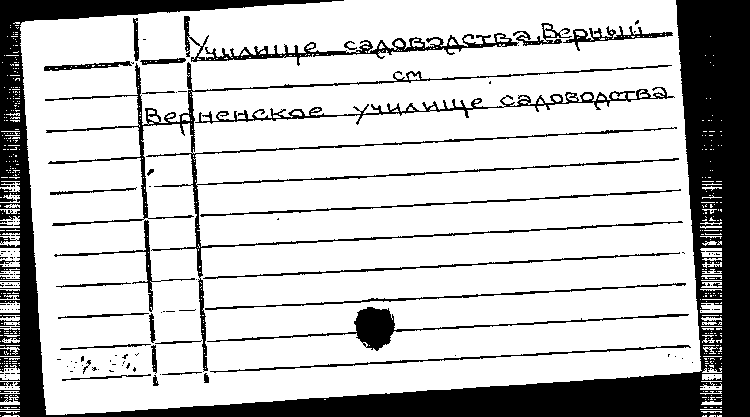 Училище садоводства, Верный
см
Верненское училище садоводства